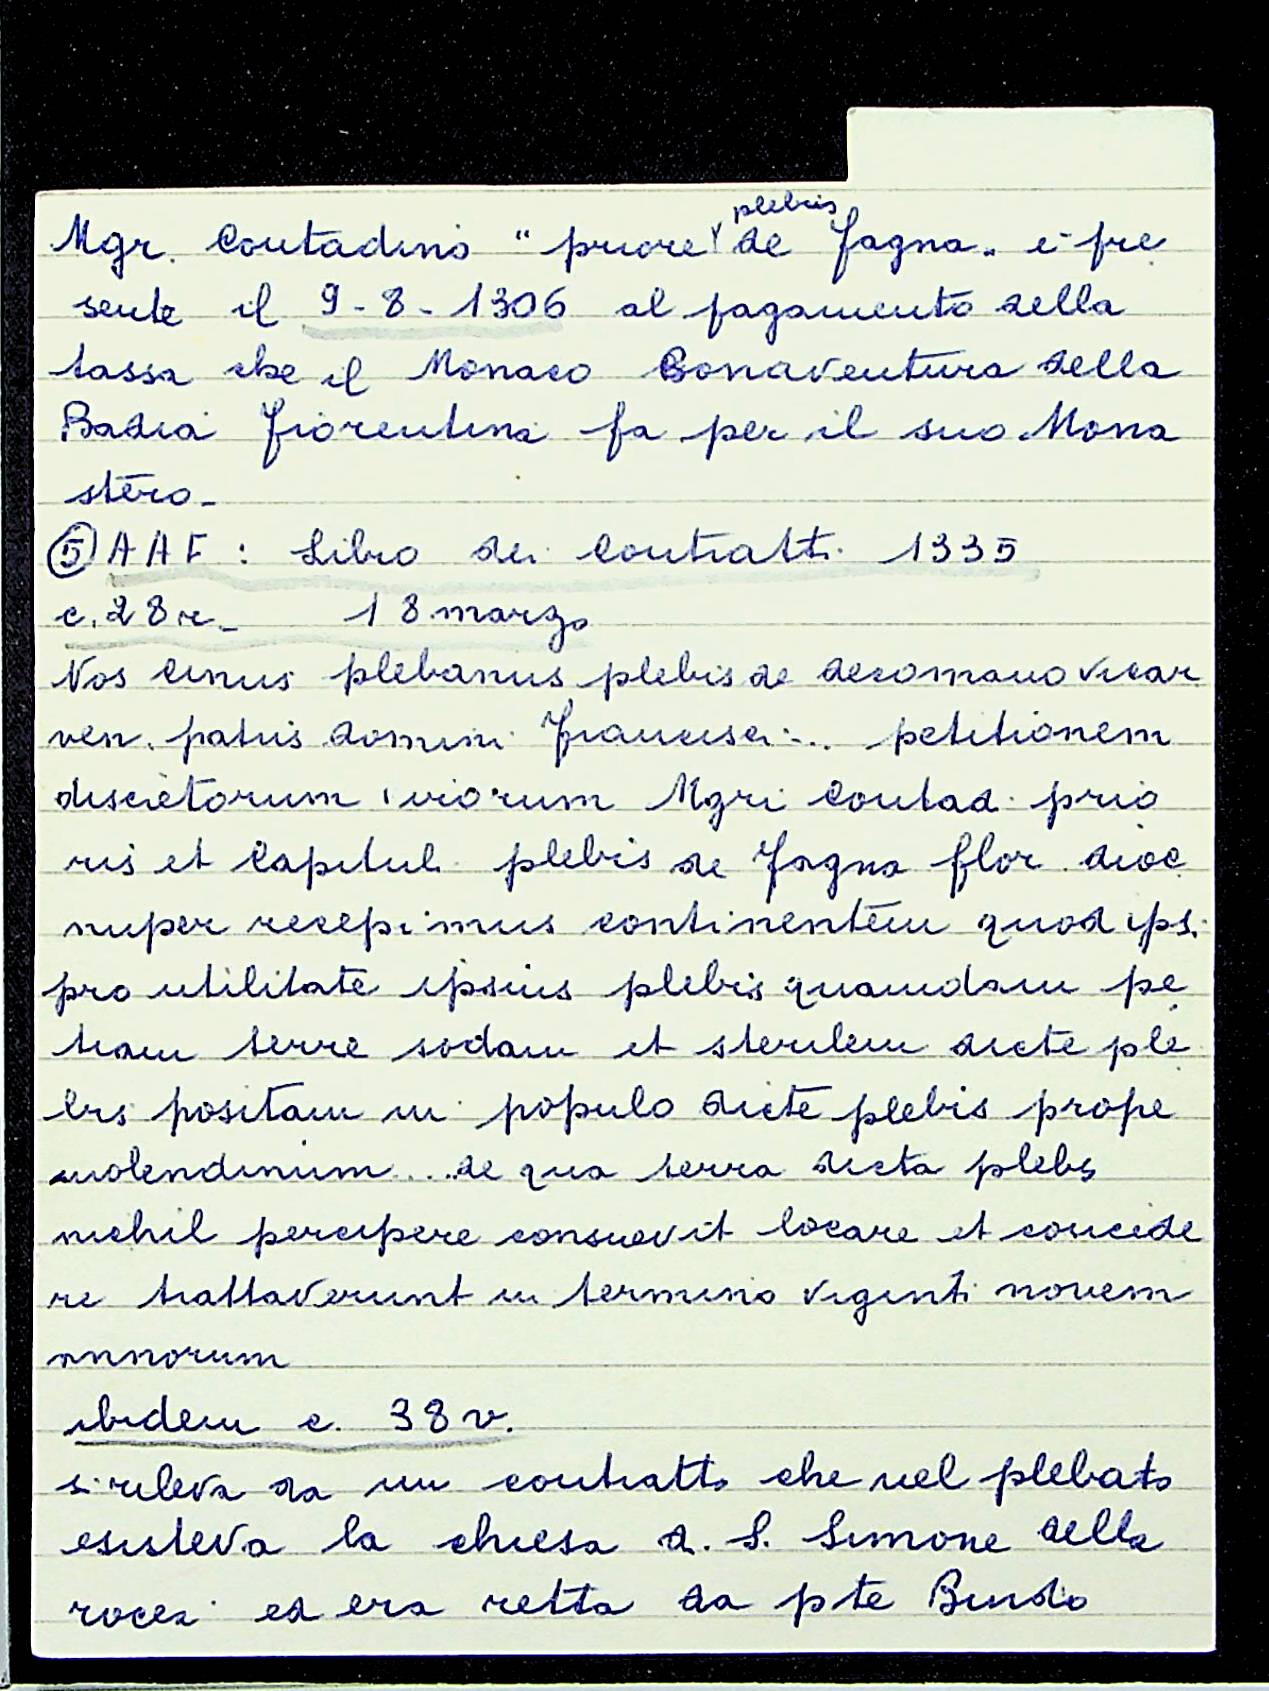 Mgr. Contadino " priore plebis de Fagna" è pre
sente il 9-8-1306 al pagamento della
tassa che il Monaco Bonaventura della
Badia Fiorentina fa per il suo Mona
stero-
⑤ AAF : Libro dei Contratti 1335
c.28r.- 18 marzo
Nos Cinus plebanus plebis de decomano vicar
ven. patris domini Francisci... petitionem
discretorum virorum Mgri Contad. prio
ris et Capituli plebis de Fagna flor. dioc
nuper recepimus continentem quod ipsi
pro utilitate ipsius plebis quamdam pe
tiam terre sodam et sterilem dicte ple
bis positam in populo dicte plebis prope
molendinum....de qua terra dicta plebs
nichil percipere consuevit locare et concede
re trattaverunt in termino viginti novem
annorum
ibidem c. 38 v.
si rileva da un contratto che nel plebato
esisteva la chiesa d. S. Simone della
rocca ed era retta da pte Bindo